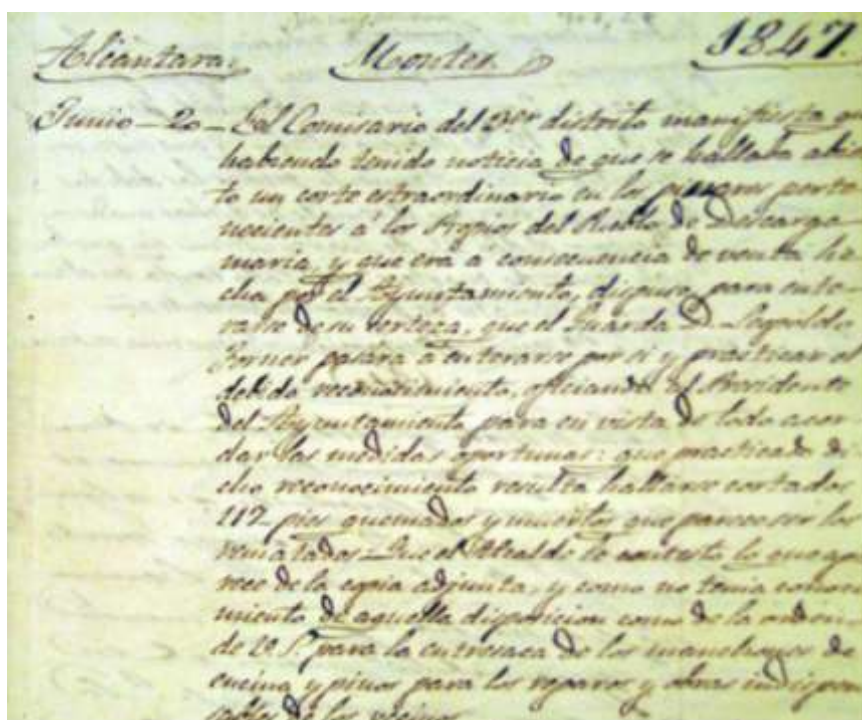 Alcántara. Montes. 1847.
Junio-20- El Comisario del 3er distrito manifiesta q
habiendo tenido noticia de que se hallaba abier
to un corte estraordinario en los pinares perte
necientes á los Propios del Pueblo de Descarga
maria, y que era a consecuencia de venta he
cha por el Ayuntamiento, dispuso, para ente
rarse de su certeza, que el Guarda D. Leopoldo
Forner pasára á enterarse por si y practicar el
debido reconocimiento, oficiando al Presidente
del Ayuntamiento para en vista de todo acor
dar las medidas oportunas: que practicado di
cho reconocimiento resulta hallarse cortados
117 pies quemados y muertos que parece ser los
rematados: Que el Alcalde le contestó lo que apa
rece de la copia adjunta, y como no tenia conoci
miento de aquella disposicion como de la orden
de para la entresaca de los de
cocina y pinos para los reparos y obras indispen
sables de los vecinos